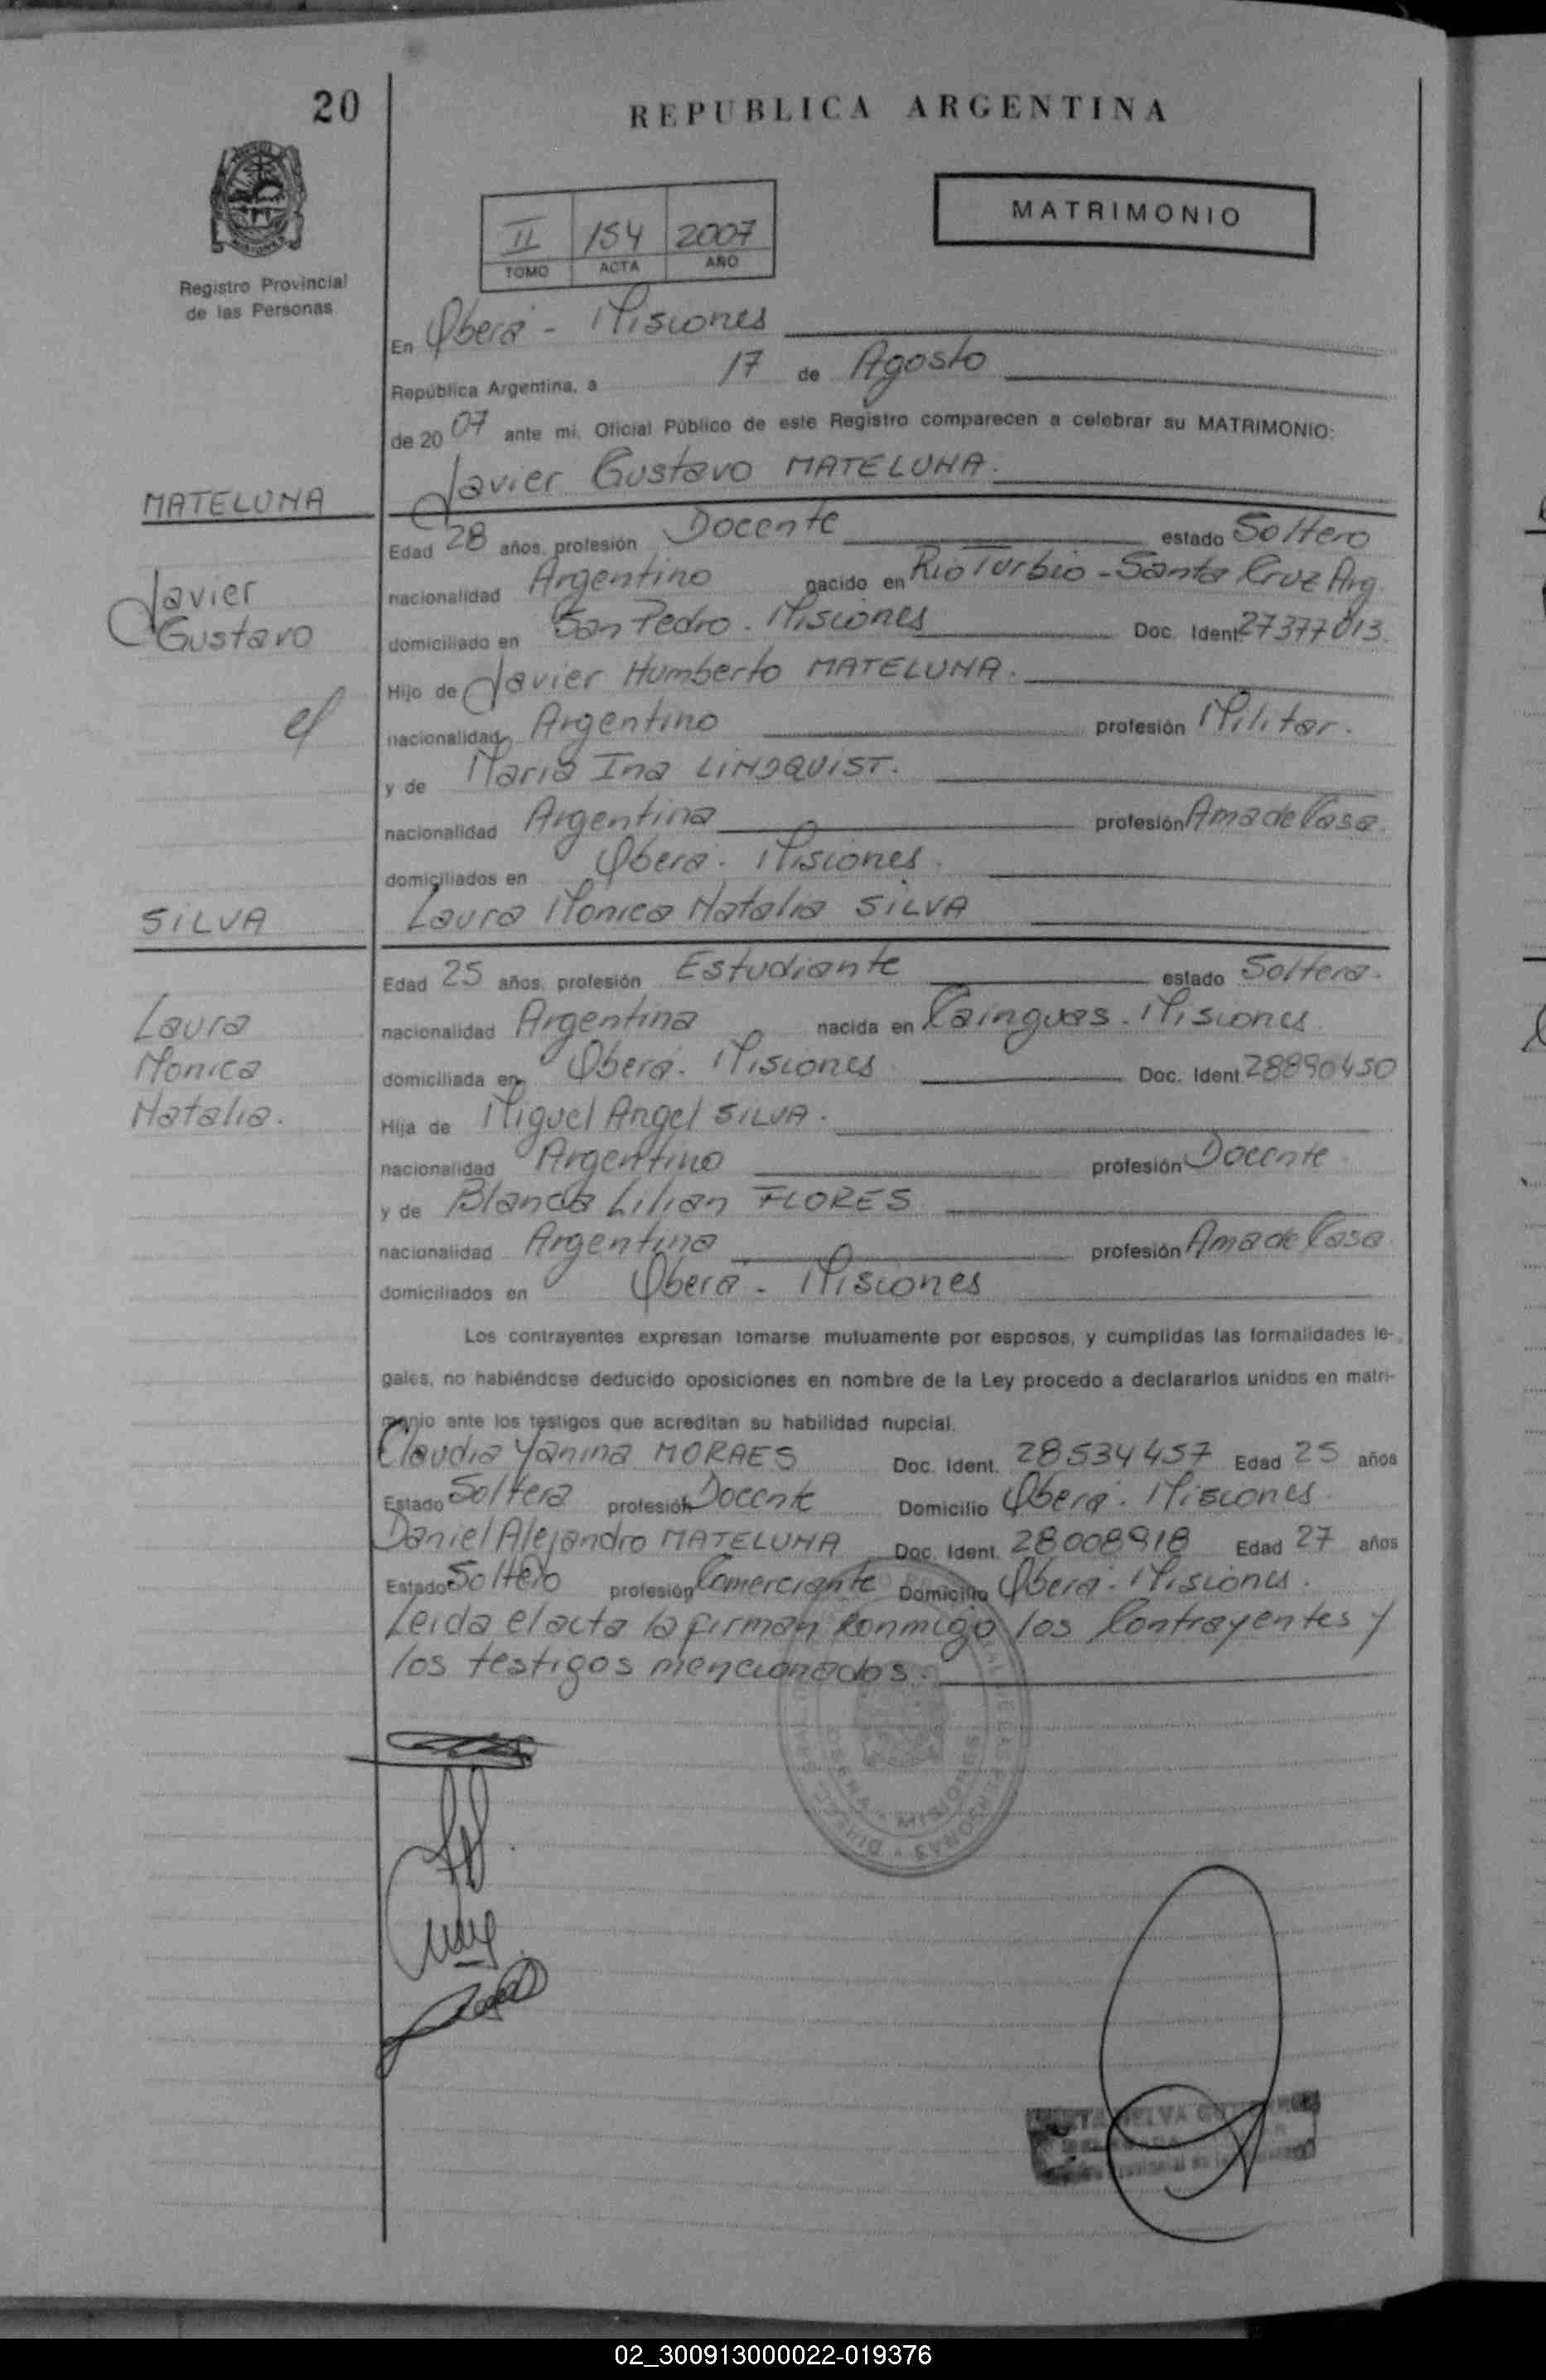 20
REPUBLICA ARGENTINA
MATRIMONIO
II 154 2007
TOMO ACTA AÑO
Registro Provincial
de las Personas
En Oberá - Misiones
República Argentina, a 17 de Agosto
de 2007 ante mi, Oficial Público de este Registro comparecen a celebrar su MATRIMONIO:
Javier Gustavo MATELUNA.
MATELUNA
Edad 28 años, profesión Docente estado Soltero
nacionalidad Argentino nacido en Rio Turbio - Santa Cruz Arg.
Javier
Gustavo
domiciliado en San Pedro - Misiones Doc. Ident. 27377013.
Hijo de Javier Humberto MATELUNA.
nacionalidad Argentino profesión Militar.
y de Maria Ina LINDQUIST.
nacionalidad Argentina profesión Ama de Casa.
domiciliados en Oberá - Misiones.
SILVA
Laura Monica Natalia SILVA
Edad 25 años, profesión Estudiante estado Soltera.
Laura
Monica
Natalia.
nacionalidad Argentina nacida en Cainguas - Misiones
domiciliada en Oberá - Misiones Doc. Ident. 28890450
Hija de Miguel Angel SILVA.
nacionalidad Argentino profesión Docente
y de Blanca Lilian FLORES
nacionalidad Argentina profesión Ama de Casa.
domiciliados en Oberá - Misiones
Los contrayentes expresan tomarse mutuamente por esposos, y cumplidas las formalidades le-
gales, no habiéndose deducido oposiciones en nombre de la Ley procedo a declararlos unidos en matri-
monio ante los testigos que acreditan su habilidad nupcial.
Claudia Yanina MORAES Doc. Ident. 28534457 Edad 25 años
Estado Soltera profesión Docente Domicilio Oberá - Misiones.
Daniel Alejandro MATELUNA Doc. Ident. 28008918 Edad 27 años
Estado Soltero profesión Comerciante Domicilio Oberá - Misiones.
Leida el acta la firman conmigo los Contrayentes y
los testigos mencionados.
02_300913000022-019376